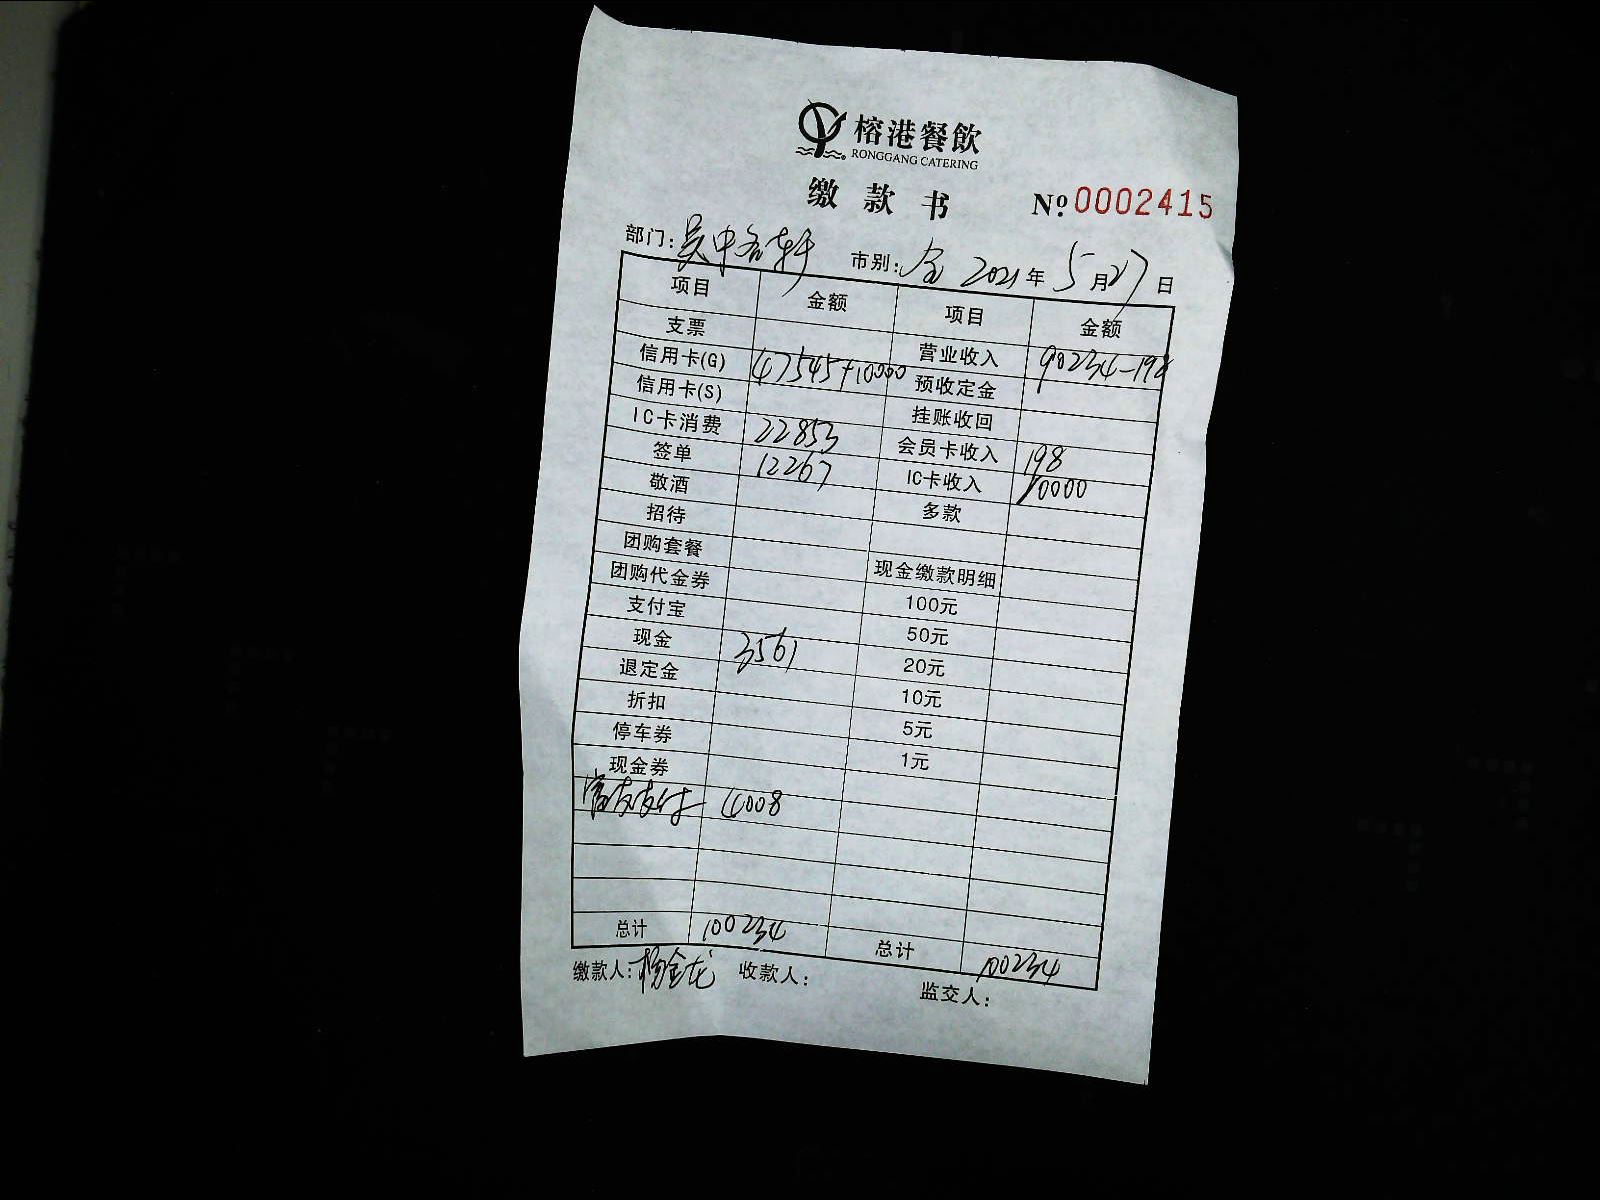 榕港餐飲
RONGGANG CATERING
缴款书 № 0002415
部门: 吴中名轩 市别: 全 2021年5月27日
项目 金额 项目 金额
支票 营业收入 90234-198
信用卡(G) 47545+10000 预收定金
信用卡(S) 挂账收回
IC卡消费 22853 会员卡收入 198
签单 12267 IC卡收入 10000
敬酒 多款
招待
团购套餐 现金缴款明细
团购代金券 100元
支付宝 50元
现金 3561 20元
退定金 10元
折扣 5元
停车券 1元
现金券
支付 4008
总计 100234 总计 100234
缴款人: 杨金龙 收款人: 监交人: